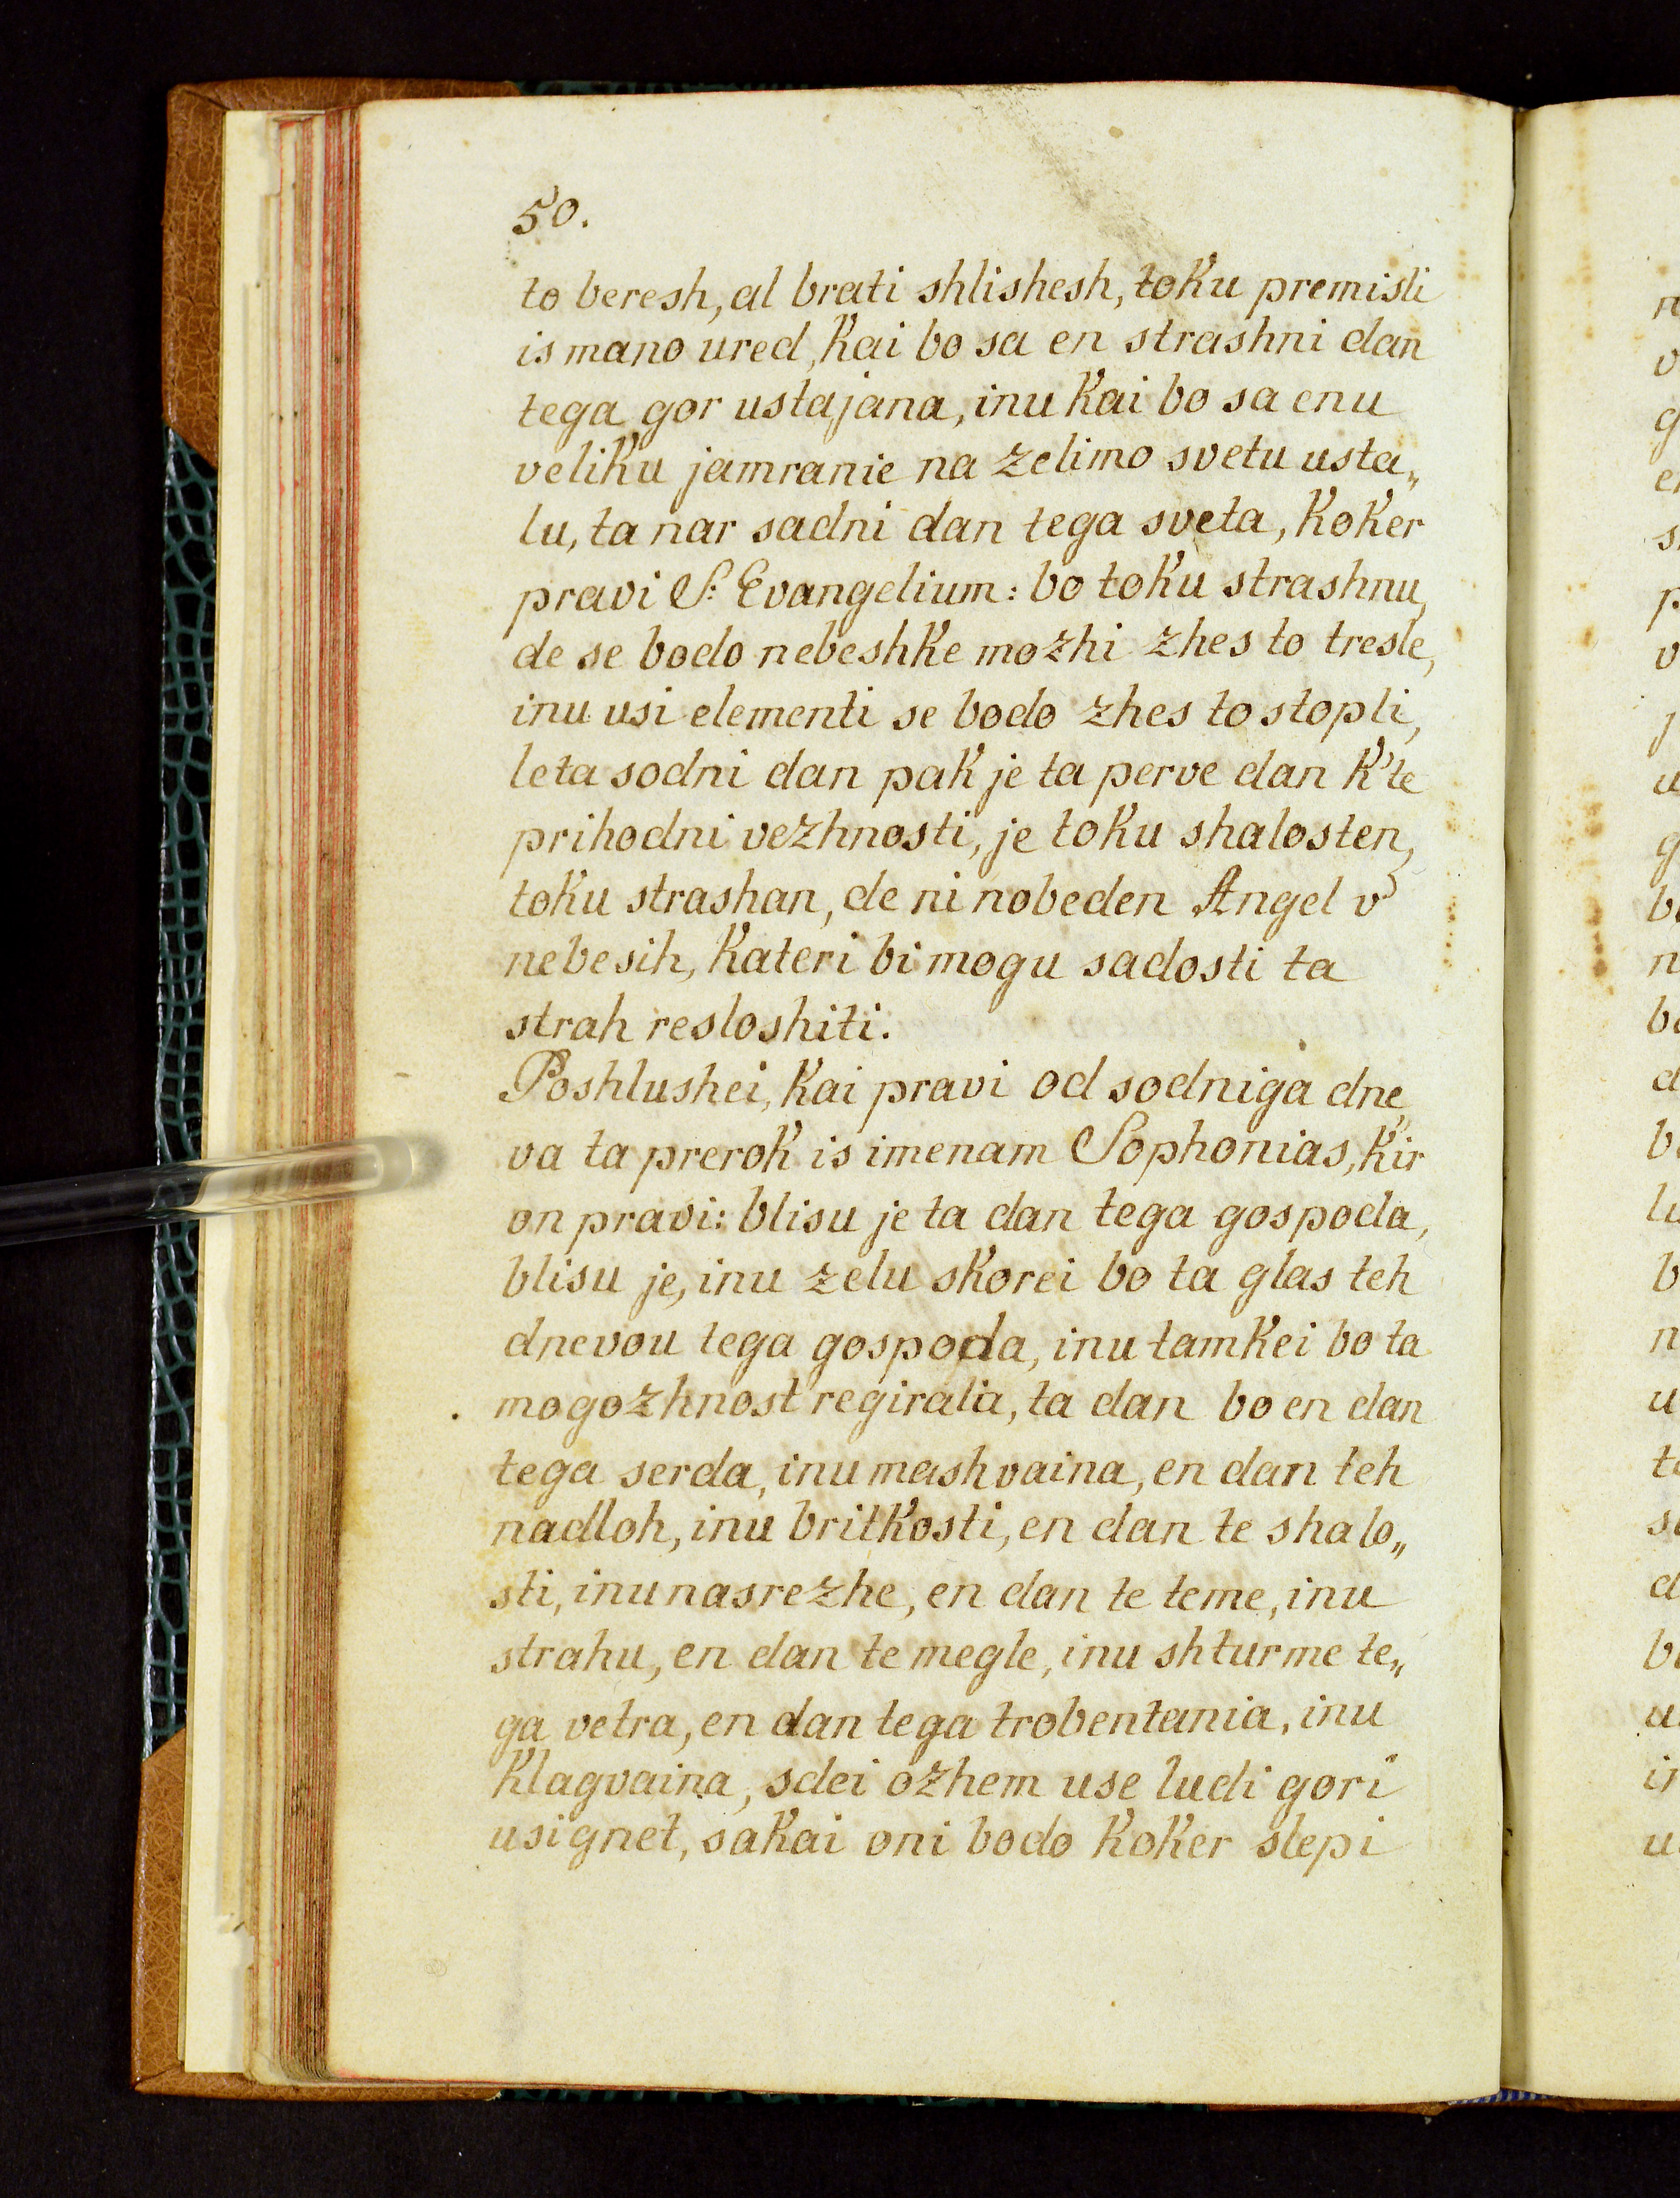 50.
to beresh, al brati shlishesh, toku premisli
is mano ured, kai bo sa en strashni dan
tega gor ustajana, inu kai bo sa enu
veliku jamranie na zelimo svetu usta„
lu, ta nar sadni dan tega sveta, koker
pravi S: Evangelium: bo toku strashnu,
de se bodo nebeshke mozhi zhes to tresle,
inu usi elementi se bodo zhes to stopli,
leta sodni dan pak je ta perve dan k'te
prihodni vezhnosti, je toku shalosten,
toku strashan, de ni nobeden Angel v
nebesih, kateri bi mogu sadosti ta
strah resloshiti.
Poshlushei, kai pravi od sodniga dne„
va ta prerok is imenam Sophonias, kir
on pravi: blisu je ta dan tega gospoda,
blisu je, inu zelu skorei bo ta glas teh
dnevou tega gospoda, inu tamkei bo ta
mogozhnost regirala, ta dan bo en dan
tega serda, inu mashvaina, en dan teh
nadloh, inu britkosti, en dan te shalo„
sti, inu nasrezhe, en dan te teme, inu
strahu, en dan te megle, inu shturme te„
ga vetra, en dan tega trobentania, inu
klagvaina, sdei ozhem use ludi gori
usignet, sakai oni bodo koker slepi